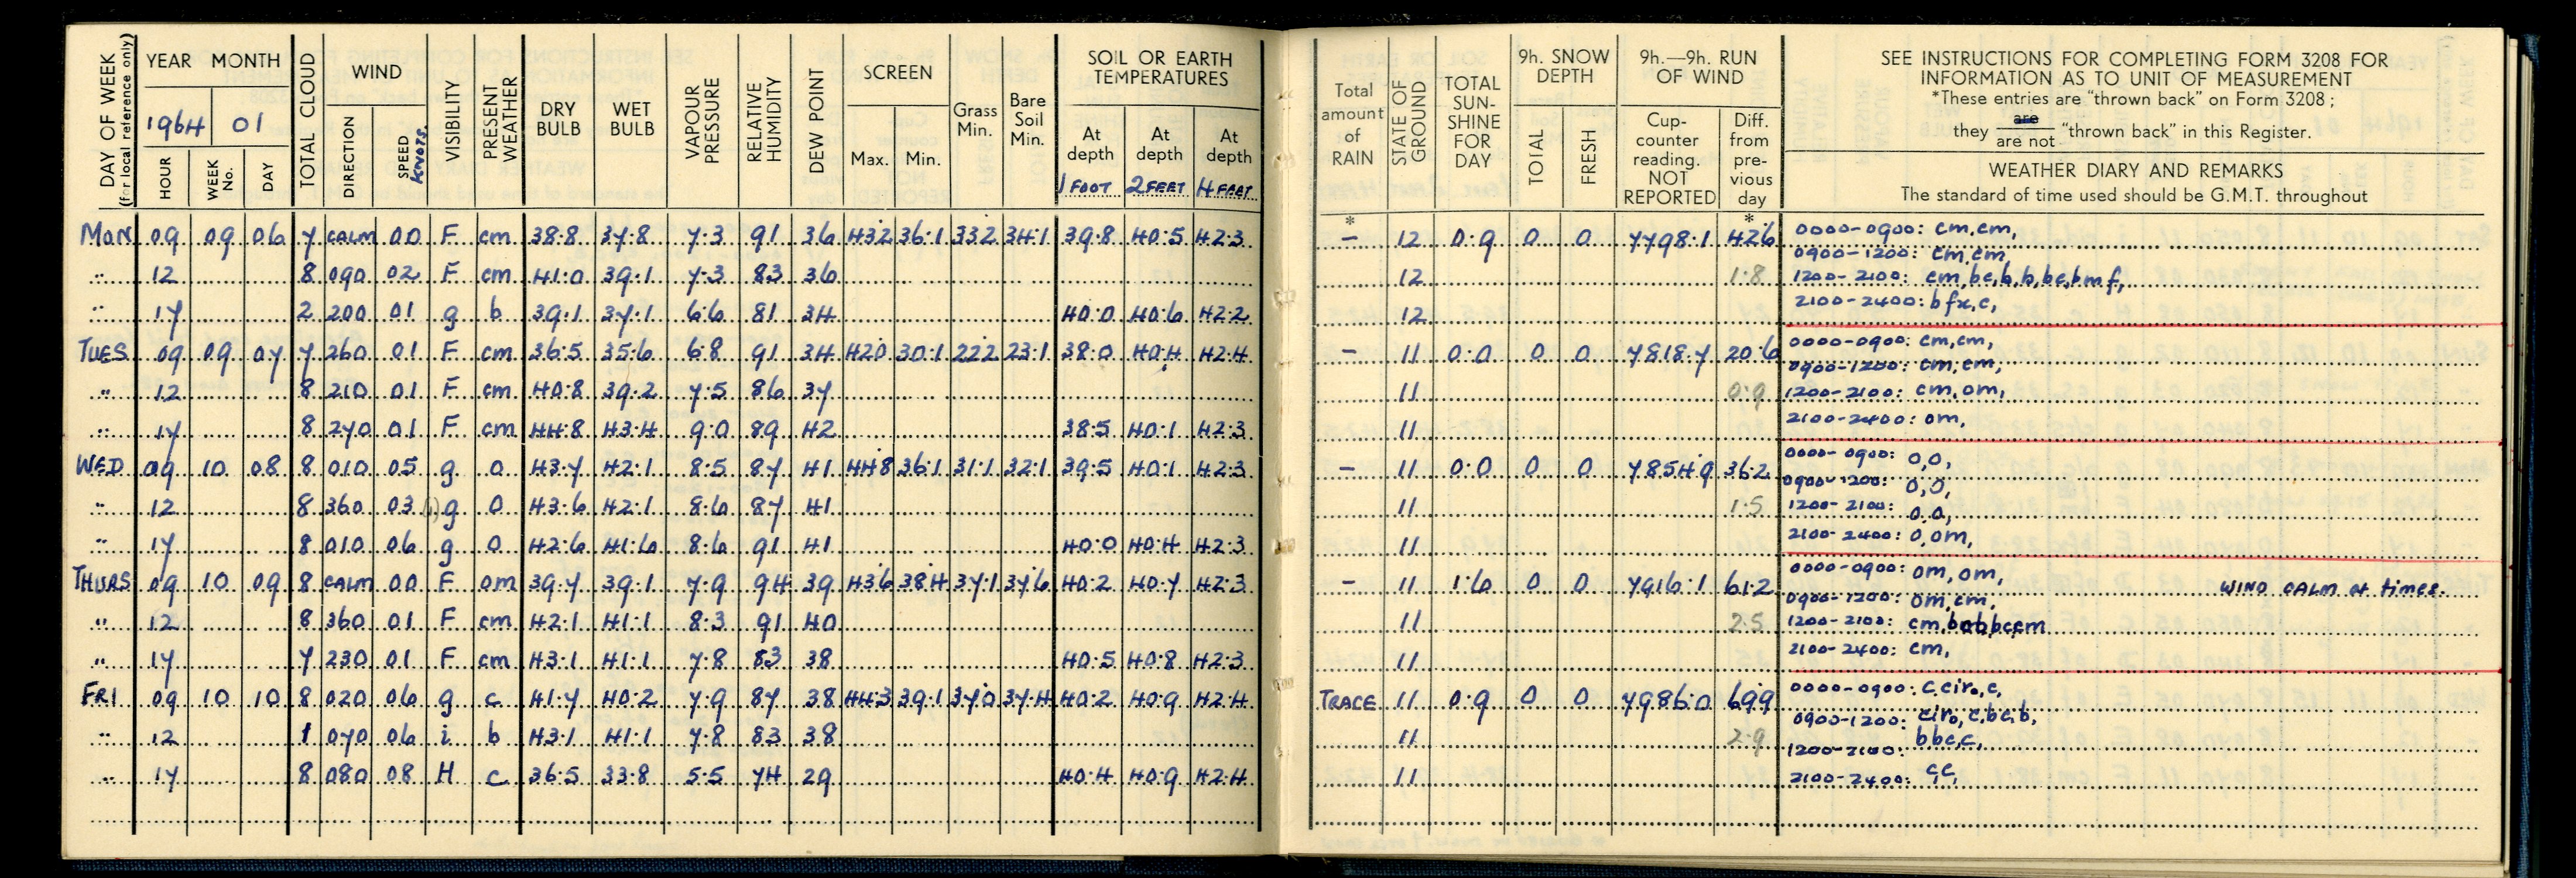 DAY OF WEEK (for local reference only)
YEAR MONTH
1964 01
HOUR WEEK No. DAY
TOTAL CLOUD
WIND
DIRECTION SPEED KNOTS.
VISIBILITY
PRESENT WEATHER
DRY BULB
WET BULB
VAPOUR PRESSURE
RELATIVE HUMIDITY
DEW POINT
SCREEN
Max. Min.
Grass Min.
Bare Soil Min.
SOIL OR EARTH TEMPERATURES
At depth 1 FOOT
At depth 2 FEET
At depth 4 FEET
Total amount of RAIN
STATE OF GROUND
TOTAL SUN-SHINE FOR DAY
9h. SNOW DEPTH
TOTAL FRESH
9h.—9h. RUN OF WIND
Cup-counter reading. NOT REPORTED
Diff. from pre-vious day
SEE INSTRUCTIONS FOR COMPLETING FORM 3208 FOR
INFORMATION AS TO UNIT OF MEASUREMENT
*These entries are "thrown back" on Form 3208;
they are / are not "thrown back" in this Register.
WEATHER DIARY AND REMARKS
The standard of time used should be G.M.T. throughout
* *
MON 09 09 06 7 CALM 00 F cm 38.8 37.8 7.3 91 36 43.2 36.1 33.2 34.1 39.8 40.5 42.3 – 12 0.9 0 0 7798.1 42.6 0000-0900: cm,cm,
0900-1200: cm,cm,
" 12 8 090 02 F cm 41.0 39.1 7.3 83 36 12 1.8 1200-2100: cm,bc,b,b,bc,bmf,
" 17 2 200 01 g b 39.1 37.1 6.6 81 34 40.0 40.6 42.2 12 2100-2400: bfx,c,
TUES 09 09 07 7 260 01 F cm 36.5 35.6 6.8 91 34 42.0 30.1 22.2 23.1 38.0 40.4 42.4 – 11 0.0 0 0 7818.7 20.6 0000-0900: cm,cm,
0900-1200: cm,cm,
" 12 8 210 01 F cm 40.8 39.2 7.5 86 37 11 0.9 1200-2100: cm,om,
" 17 8 270 01 F cm 44.8 43.4 9.0 89 42 38.5 40.1 42.3 11 2100-2400: om,
WED 09 10 08 8 010 05 g o 43.7 42.1 8.5 87 41 44.8 36.1 31.1 32.1 39.5 40.1 42.3 – 11 0.0 0 0 7854.9 36.2 0000-0900: o,o,
0900-1200: o,o,
" 12 8 360 03 g o 43.6 42.1 8.6 87 41 11 1.5 1200-2100: o,o,
" 17 8 010 06 g o 42.6 41.6 8.6 91 41 40.0 40.4 42.3 11 2100-2400: o,om,
THURS 09 10 09 8 CALM 00 F om 39.7 39.1 7.9 94 39 43.6 38.4 37.1 37.6 40.2 40.7 42.3 – 11 1.6 0 0 7916.1 61.2 0000-0900: om,om, WIND CALM at times.
0900-1200: om,cm,
" 12 8 360 01 F cm 42.1 41.1 8.3 91 40 11 2.5 1200-2100:
" 17 7 230 01 F cm 43.1 41.1 7.8 83 38 40.5 40.8 42.3 11 2100-2400: cm,
FRI 09 10 10 8 020 06 g c 41.7 40.2 7.9 87 38 44.3 39.1 37.0 37.4 40.2 40.9 42.4 TRACE 11 0.9 0 0 7986.0 69.9 0000-0900: c,ciro,c,
0900-1200: ciro,c,bc,b,
" 12 1 070 06 i b 43.1 41.1 7.8 83 38 11 2.9 1200-2100: b,bc,c,
" 17 8 080 08 H c 36.5 33.8 5.5 74 29 40.4 40.9 42.4 11 2100-2400: c,c,